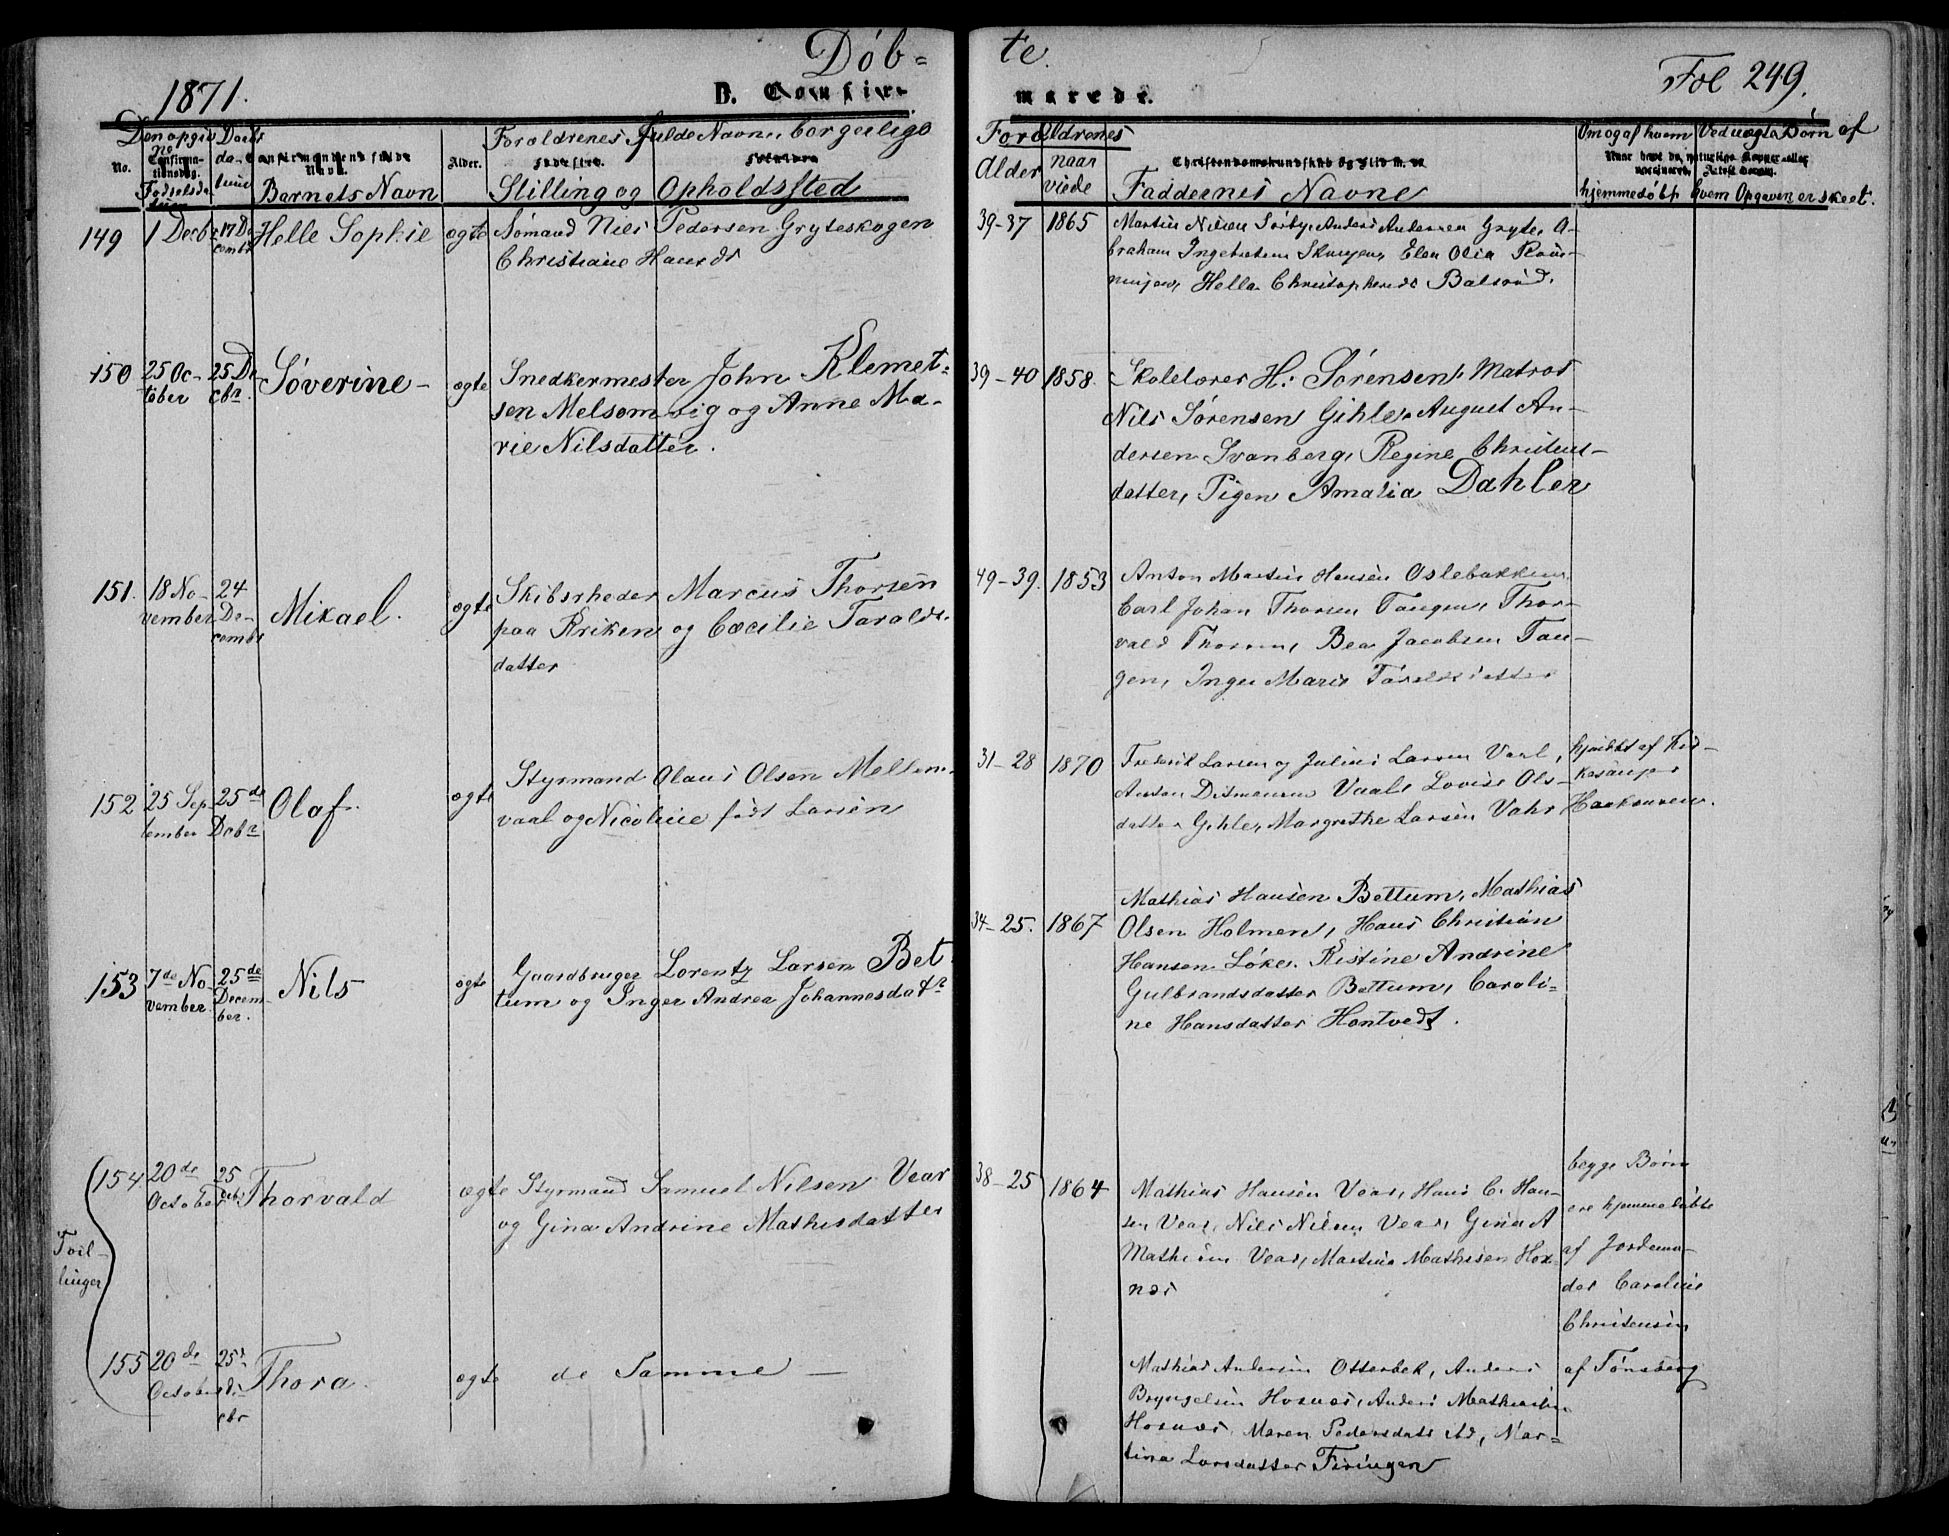 Døb-
te.
1871.
Fol 249.
D. Confir-
marede.
Den opgivne
Fødselsda
Daabs
da-
tum
No.
Confirma-
tionsdag.
Confirmandens fulde
Navn.
Barnets Navn
Alder.
Forældrenes fulde Navne, borgerlige
Stilling og Opholdssted
Forældrenes
Alder
naar
viede
Christendomskundskab og Flid m. v.
Faddernes Navne
Om og af hvem
hjemmedøbt
Ved uægte Børn af
hvem Opgaven er skeet.
149
1 Decbr
17 De
cembr
Helle Sophie
ægte
Sømand Nils Pedersen Gryteskogen
Christiane Hansdr
39-37
1865
Martin Nilsen Sørby, Anders Andersen Gryte, A-
braham Ingebretsen Skougen, Elen Olia Røn-
ningen, Helle Christophersdr Balsrød.
150
25 Oc-
tober
25 De
cbr.
Søverine-
ægte
Snedkermester John Klemet-
sen Melsomvig og Anne Ma-
rie Nilsdatter.
39-40
1858.
Skolelærer H: Sørensen, Matros
Nils Sørensen Gihle, August An-
dersen Svanberg, Regine Christens-
datter, Pigen Amalia Dahler
151.
18 No-
vember
24
De-
cembr
Mikael.
ægte
Skibsrheder Marcus Thorsen
paa Kriken og Cæcilie Taralds-
datter
49-39.
1853
Anton Martin Hansen Oslebakken,
Carl Johan Thorsen Tangen, Thor-
vald Thorsen, Bea Jacobsen Tan-
gen, Inger Marie Taralsdatter
152
25 Sep
tember
25de
Dcbr
Olaf.
ægte
Styrmand Olaus Olsen Mellem-
vaal og Nicoline født Larsen
31-28
1870
Frederik Larsen og Julius Larsen Vaal,
Anton Ditmansen Vaale Lovise Ols-
datter Gihle, Margrethe Larsen Vahr
hjmdbt af
Haakonsen.
153
7de No
vember
25de
Decem-
ber.
Nils
ægte
Gaardbruger Lorentz Larsen Bet-
tum og Inger Andrea Johannesdatr
34-25.
1867
Mathias Hansen Bettum, Mathias
Olsen Holmen, Hans Christian
Hansen Løke, Kistine Andrine
Gulbrandsdatter Bettum, Caroli-
ne Hansdatter Hontvedt.
Tvil-
linger
154
20de
October
25
Dcbr
Thorvald
ægte
Styrmand Samuel Nilsen Vear
og Gina Andrine Mathisdatter
38-25
1864
Mathias Hansen Vear, Hans C. Han-
sen Vear, Nils Nilsen Vear, Gina A
Mathisen Vear, Martine Mathisen Hox-
nes
begge Børn
ere hjemmedøbte
af Jordemo-
der Caroline
Christensen
af Tønsberg
155
20de
October
25de
cbr
Thora
ægte
de Samme —
Mathias Andersen Otterbek, Anders
Bryngelsen Hoxnes, Anders Mathiasen
Hoxnes, Maren Pedersdatr Ød, Mar-
tina Larsdatter Firingen